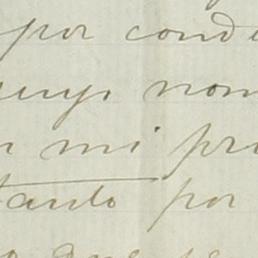 por cond
cuyo nom
n mi pri
tanto por